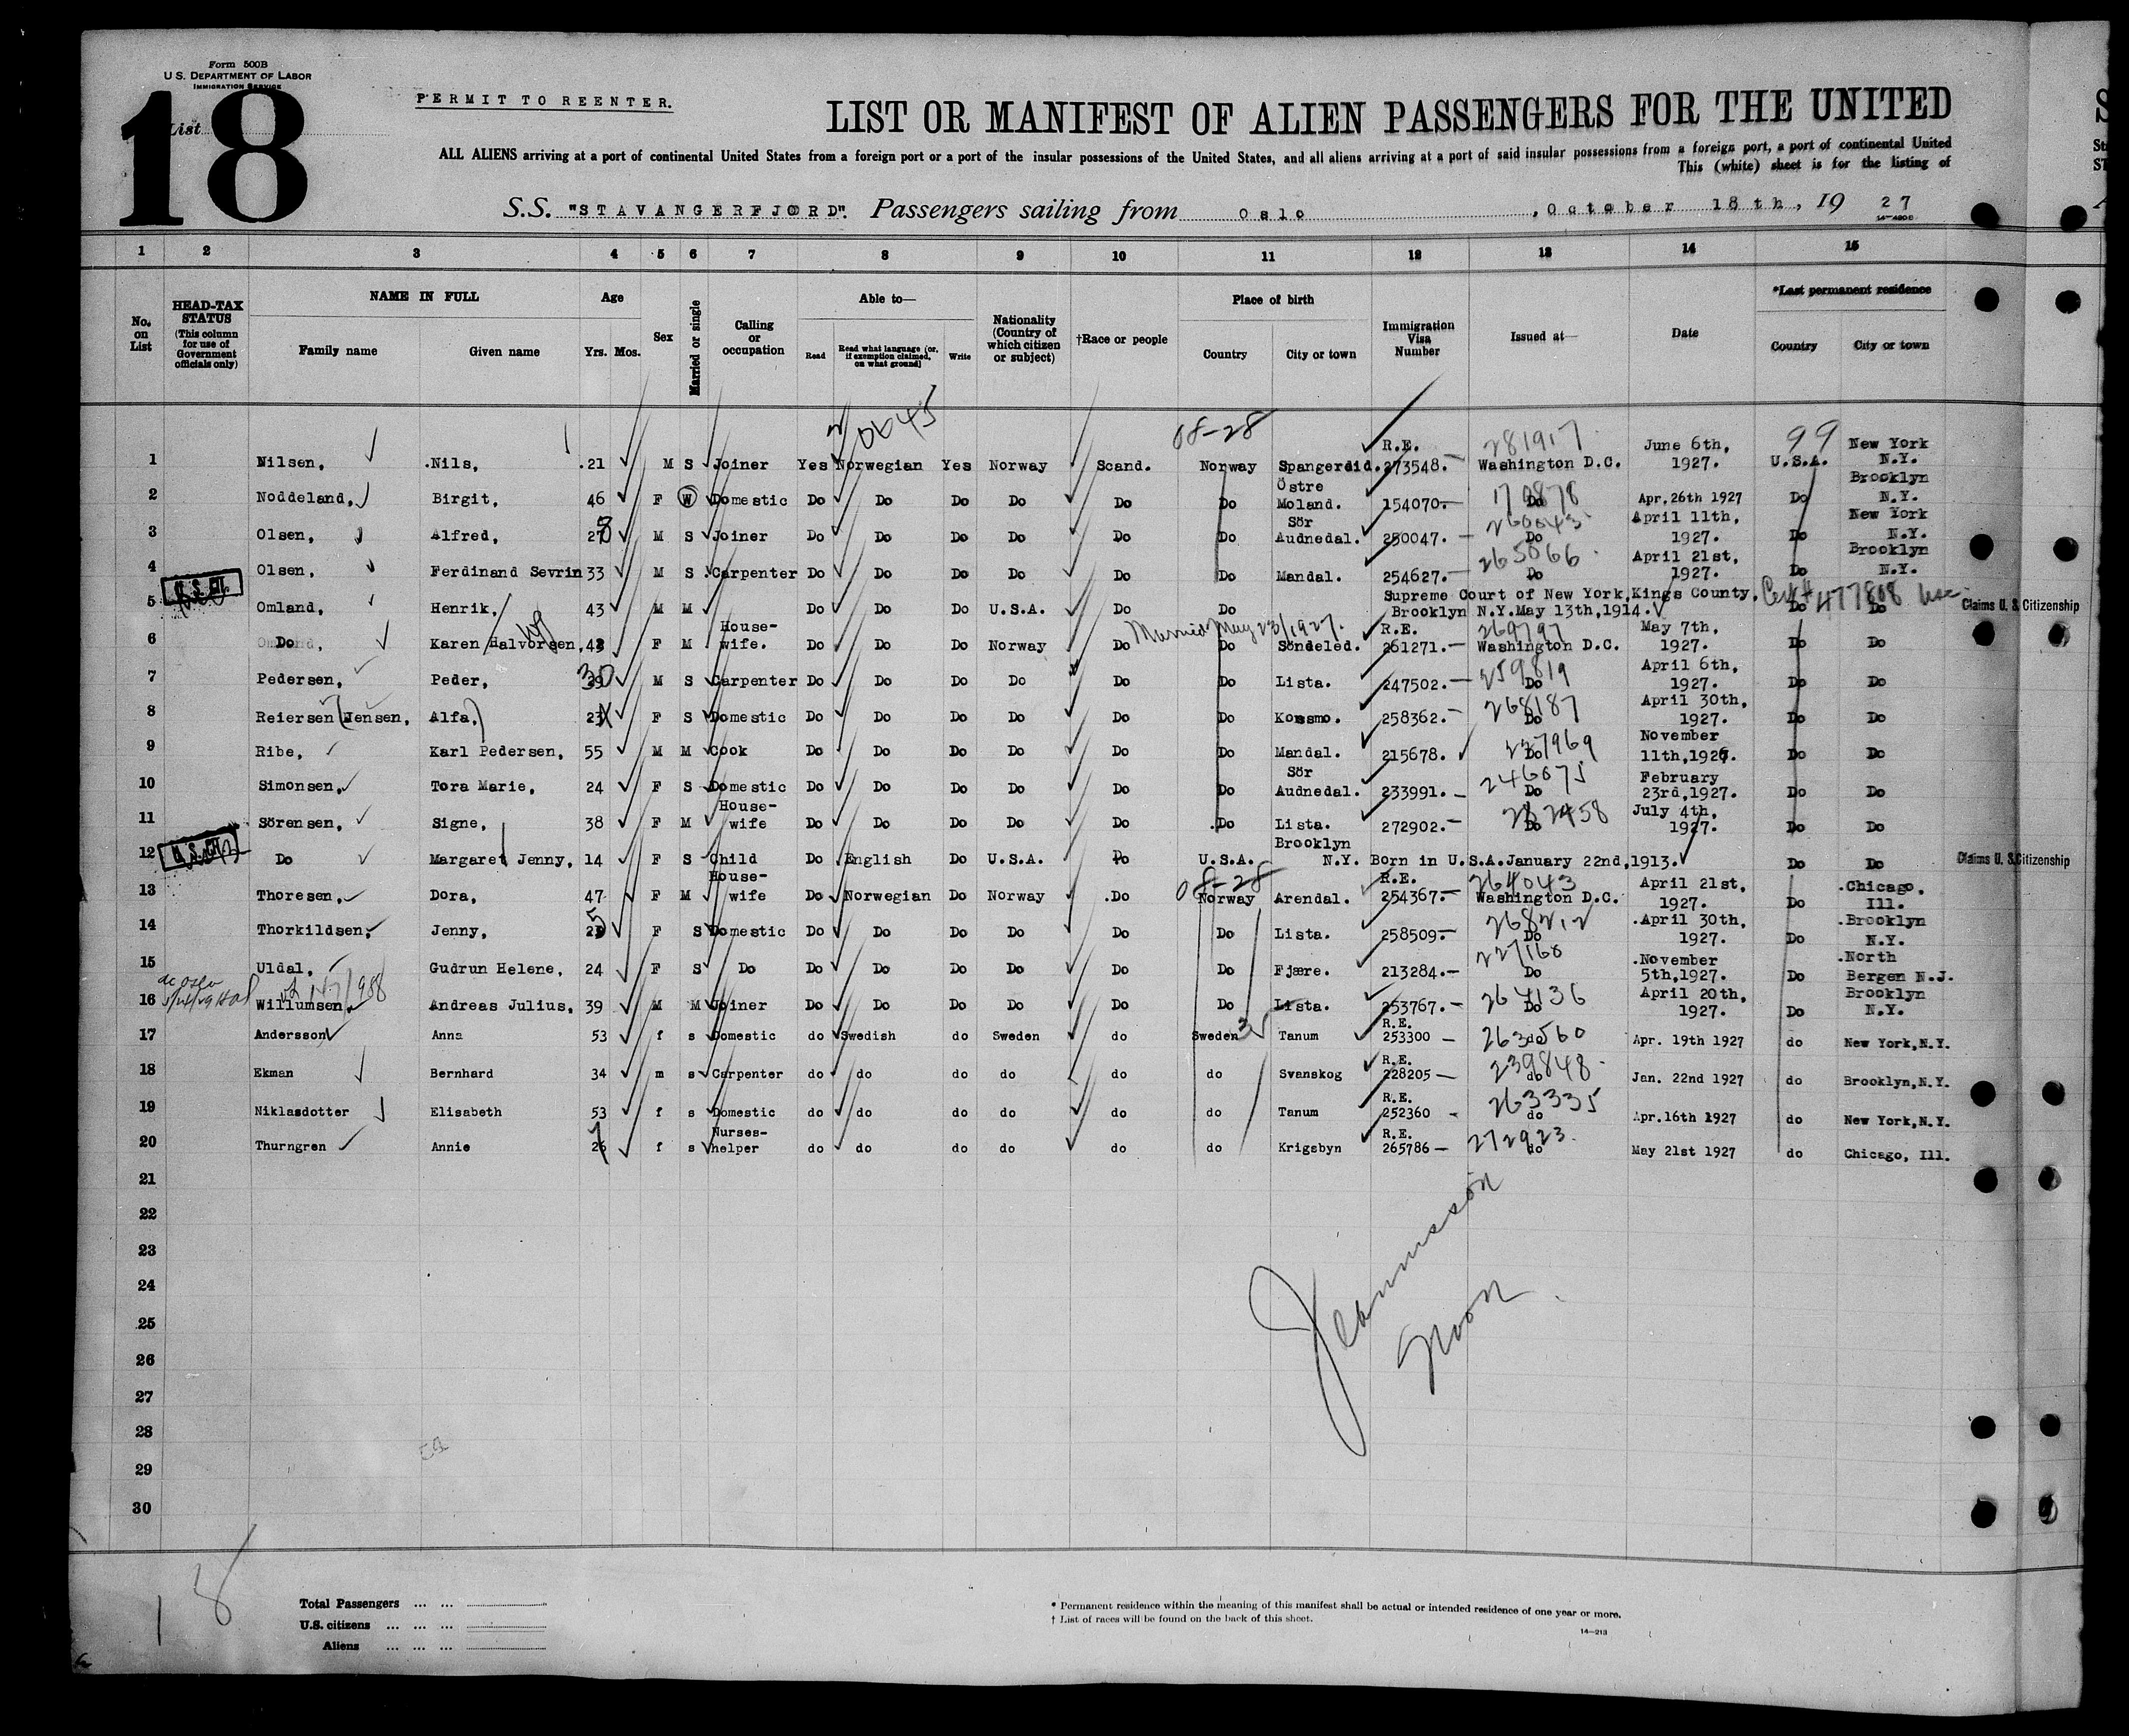 Form 500B
U.S. DEPARTMENT OF LABOR
IMMIGRATION SERVICE
List 18
PERMIT TO REENTER.
LIST OR MANIFEST OF ALIEN PASSENGERS FOR THE UNITED
ALL ALIENS arriving at a port of continental United States from a foreign port or a port of the insular possessions of the United States, and all aliens arriving at a port of said insular possessions from a foreign port, a port of continental United
This (white) sheet is for the listing of
S.S. "STAVANGERFJORD". Passengers sailing from Oslo, October 18th, 1927
1 2 3 4 5 6 7 8 9 10 11 12 13 14 15
No. on List
HEAD-TAX STATUS (This column for use of Government officials only)
NAME IN FULL Family name Given name
Age Yrs. Mos.
Sex
Married or single
Calling or occupation
Able to— Read Read what language (or, if exemption claimed, on what ground) Write
Nationality (Country of which citizen or subject)
†Race or people
Place of birth Country City or town
Immigration Visa Number
Issued at—
Date
*Last permanent residence Country City or town
0045 08-28 99
1 Nilsen, Nils, 21 M S Joiner Yes Norwegian Yes Norway Scand. Norway Spangerdid. R.E. 273548. 281917 Washington D.C. June 6th, 1927. U.S.A. New York N.Y.
2 Noddeland, Birgit, 46 F W Domestic Do Do Do Do Do Do Östre Moland. 154070. 170878 Do Apr.26th 1927 Do Brooklyn N.Y.
3 Olsen, Alfred, 28 M S Joiner Do Do Do Do Do Do Sör Audnedal. 250047. 260043 Do April 11th, 1927. Do New York N.Y.
4 Olsen, Ferdinand Sevrin 33 M S Carpenter Do Do Do Do Do Do Mandal. 254627. 265066 Do April 21st, 1927. Do Brooklyn N.Y.
U.S. CIT.
5 Omland, Henrik, 43 M M Do Do Do U.S.A. Do Do Supreme Court of New York, Kings County, Brooklyn N.Y. May 13th, 1914. Cert # 477808 Do Do Claims U.S. Citizenship
6 Do Karen Halvorsen, 43 F M House-wife. Do Do Do Norway Do Married May 23/1927. Do Söndeled. R.E. 261271. 269797 Washington D.C. May 7th, 1927. Do Do
7 Pedersen, Peder, 30 M S Carpenter Do Do Do Do Do Do Lista. 247502. 259819 Do April 6th, 1927. Do Do
8 Reiersen (Jensen, Alfa,) 23 F S Domestic Do Do Do Do Do Do Konsmo. 258362. 268187 Do April 30th, 1927. Do Do
9 Ribe, Karl Pedersen, 55 M M Cook Do Do Do Do Do Do Mandal. 215678. 227969 Do November 11th, 1926. Do Do
10 Simonsen, Tora Marie, 24 F S Domestic Do Do Do Do Do Do Sör Audnedal. 233991. 246075 Do February 23rd, 1927. Do Do
11 Sörensen, Signe, 38 F M House-wife Do Do Do Do Do Do Lista. 272902. 282458 Do July 4th, 1927. Do Do
U.S. CIT.
12 Do Margaret Jenny, 14 F S Child Do English Do U.S.A. Do U.S.A. Brooklyn N.Y. Born in U.S.A. January 22nd, 1913. Do Do Claims U.S. Citizenship
13 Thoresen, Dora, 47 F M House-wife Do Norwegian Do Norway Do 08-28 Norway Arendal. R.E. 254367. 264043 Washington D.C. April 21st, 1927. Do Chicago, Ill.
14 Thorkildsen, Jenny, 25 F S Domestic Do Do Do Do Do Do Lista. 258509. 268212 Do April 30th, 1927. Do Brooklyn N.Y.
15 Uldal, Gudrun Helene, 24 F S Do Do Do Do Do Do Do Fjære. 213284. 227160 Do November 5th, 1927. Do North Bergen N.J.
16 Willumsen, Andreas Julius, 39 M M Joiner Do Do Do Do Do Do Lista. 253767. 264136 Do April 20th, 1927. Do Brooklyn N.Y.
17 Andersson Anna 53 f s Domestic do Swedish do Sweden do Sweden Tanum R.E. 253300 do Apr. 19th 1927 do New York, N.Y.
18 Ekman Bernhard 34 m s Carpenter do do do do do do Svanskog R.E. 228205 239848 do Jan. 22nd 1927 do Brooklyn, N.Y.
19 Niklasdotter Elisabeth 53 f s Domestic do do do do do do Tanum R.E. 252360 263335 do Apr.16th 1927 do New York, N.Y.
20 Thurngren Annie 26 f s Nurses-helper do do do do do do Krigsbyn R.E. 265786 272923 do May 21st 1927 do Chicago, Ill.
21
22
23
24
25
26
27
28
29
30
18
Total Passengers
U.S. citizens
Aliens
* Permanent residence within the meaning of this manifest shall be actual or intended residence of one year or more.
† List of races will be found on the back of this sheet.
14—213